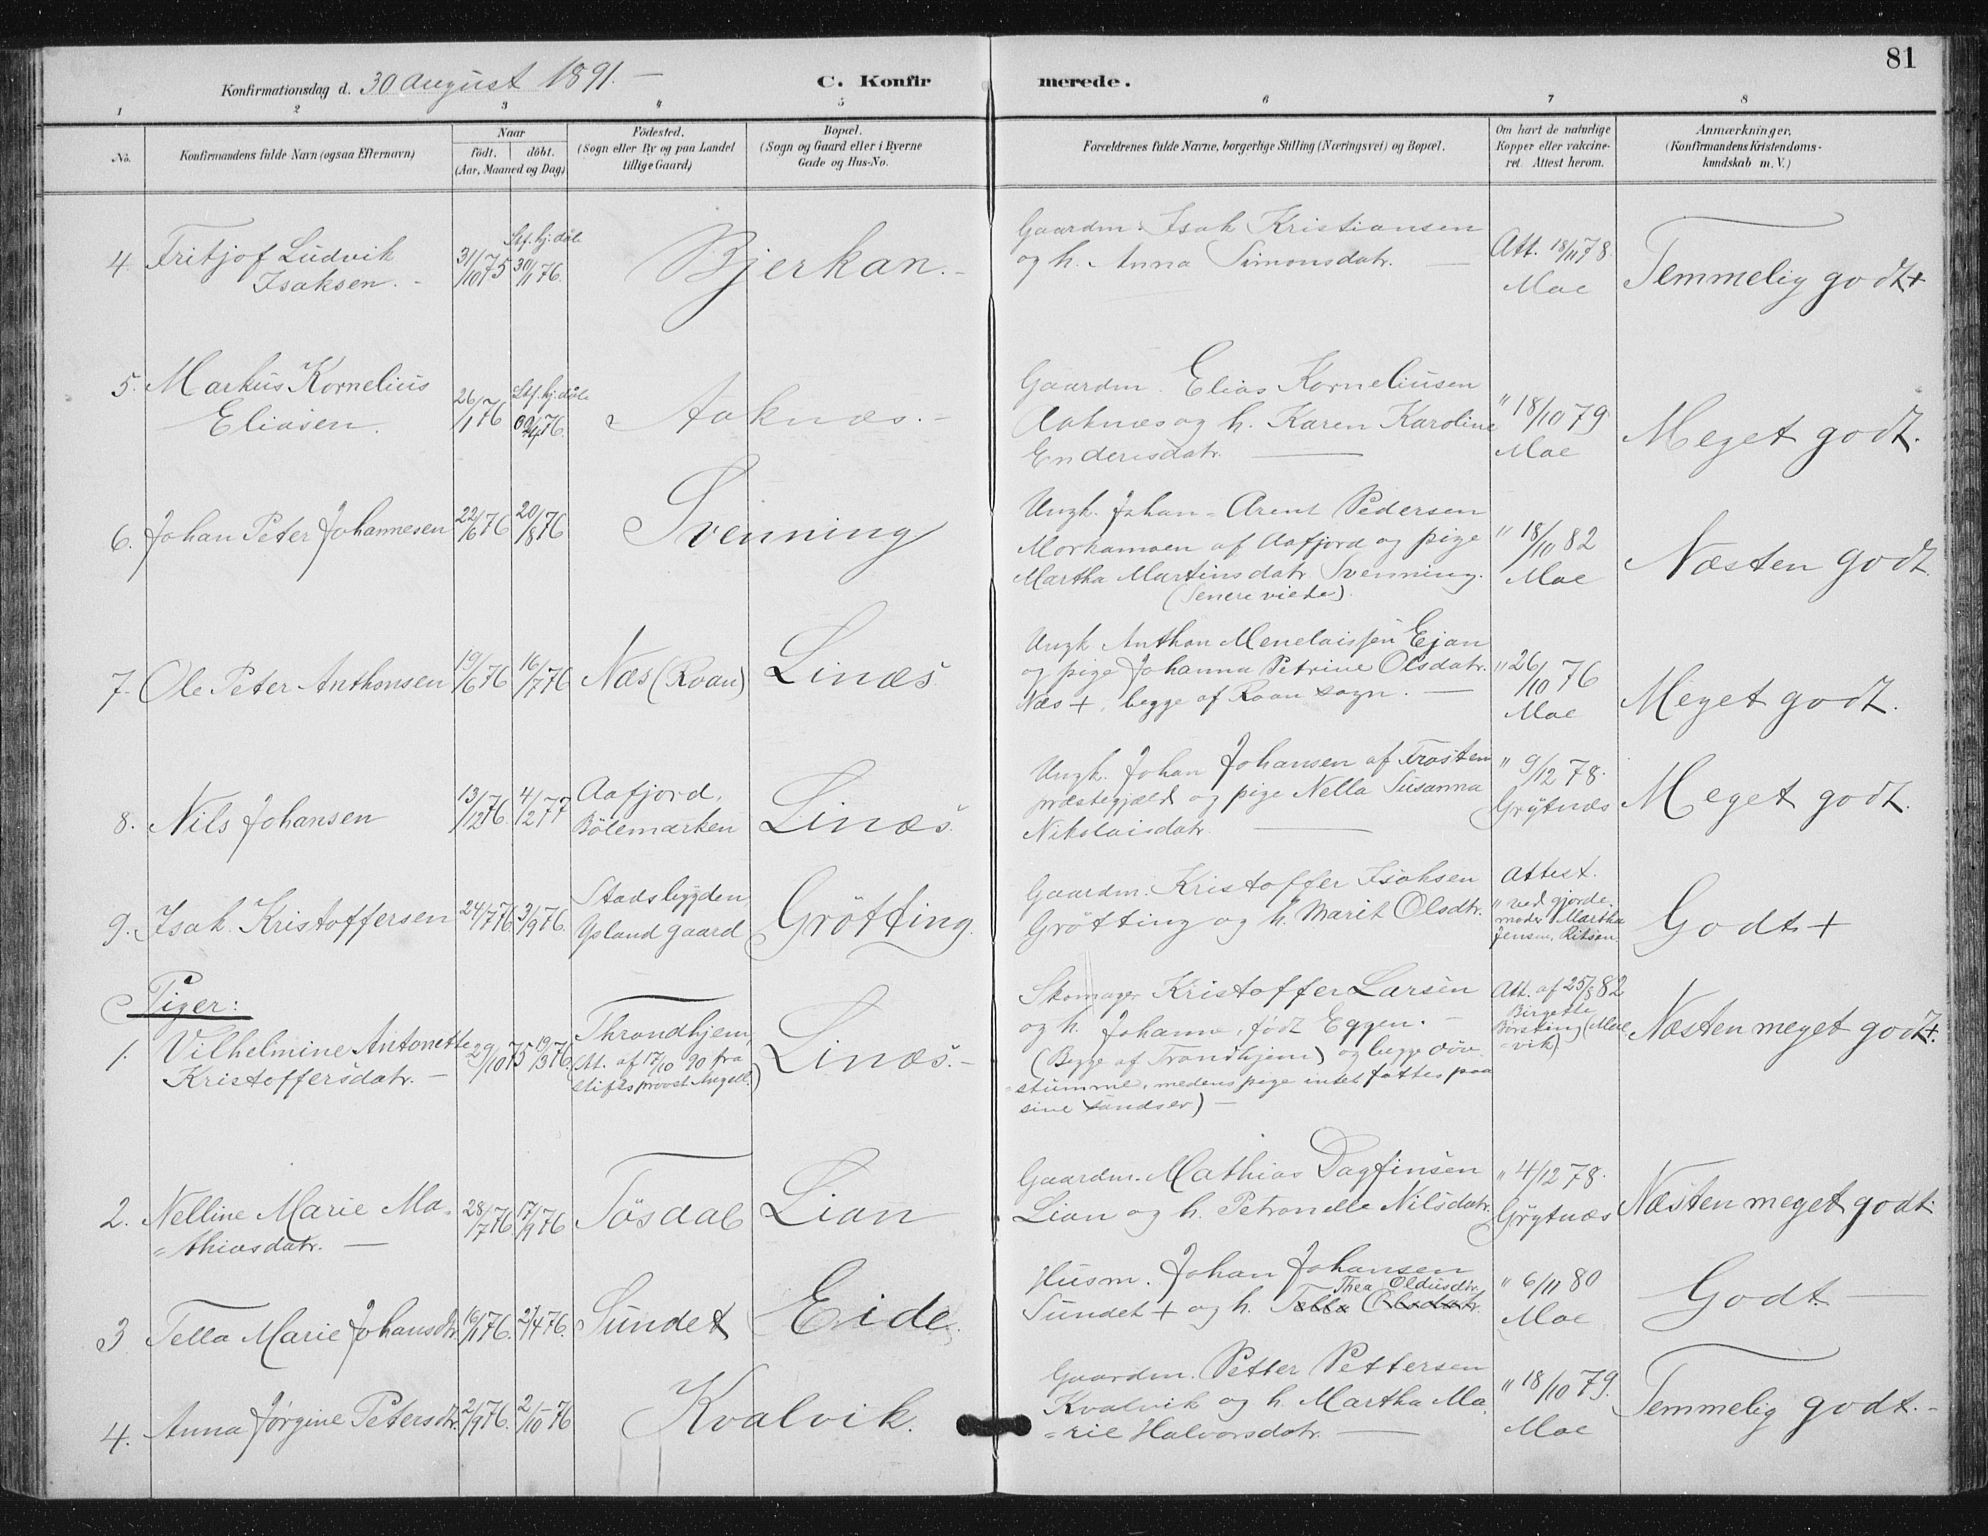 81
Konfirmationsdag d. 30 August 1891. —
C. Konfirmerede.
1 2 3 4 5 6 7 8
No.
Konfirmandens fulde Navn (ogsaa Efternavn)
Naar
født. døbt.
(Aar, Maaned og Dag)
Fødested.
(Sogn eller By og paa Landet
tillige Gaard)
Bopæl.
(Sogn og Gaard eller i Byerne
Gade og Hus-No.
Forældrenes fulde Navne, borgerlige Stilling (Næringsvei) og Bopæl.
Om havt de naturlige
Kopper eller vakcine-
ret. Attest herom.
Anmærkninger,
(Konfirmandens Kristendoms-
kundskab m. V.)
4. Fritjof Ludvik
Isaksen. -
31/10 75
Stf. hj. døbt
30/1 76.
Bjerkan. -
Gaardm. Isak Kristiansen
og h. Anna Simonsdatr. —
Att. 18/11 78.
Moe
Temmelig godt +
5. Markus Kornelius
Eliasen.
26/1 76
Stf. hj. døbt
76.
Aaknæs. -
Gaardm. Elias Korneliusen
Aaknæs og h. Karen Karoline
Endresdatr. —
" 18/10 79
Moe
Meget godt.
6. Johan Peter Johannesen
22/6 76
20/8 76
Svenning
Ungk. Johan Arent Pedersen
Morkamoen af Aafjord og pige
Martha Martinsdatr Svenning.
(Senere viede).
" 18/10 82
Moe
Næsten godt.
7. Ole Peter Anthonsen
19/6 76
16/7 76
Næs (Roan)
Linæs
Ungk Anthon Menelaissen Ejan
og pige Johanna Petrine Olsdatr.
Næs +, begge af Roan sogn. —
" 26/10 76
Moe
Meget godt.
8. Nils Johansen
13/12 76.
4/2 77
Aafjord,
Bølemarken
Linæs.
Ungk. Johan Johansen af Frosten
præstegjæld og pige Nella Susanna
Nikolaisdatr. —
" 9/12 78.
Grytnæs
Meget godt.
9. Isak Kristoffersen
24/7 76.
3/9 76.
Stadsbygden
Ysland gaard
Grøtting.
Gaardm. Kristoffer Isaksen
Grøtting og h. Marit Olsdtr.
Attest.
" ved gjorde-
moder Martha
Jensen, Ritsen.
Godt +
Piger:
1. Vilhelmine Antonette
Kristoffersdatr. —
29/10 75
19/3 76.
Throndhjem,
(Att. af 17/10 90 fra
stiftsprovst Angell.)
Linæs. -
Skomager Kristoffer Larsen
og h. Johanna, født Eggen. -
(Begge af Trondhjem) og begge døv-
stumme, medens pige intet fattes paa
sine sandser) -
Att. af 25/8 82
Birgette
Børsting (Mele
vik)
Næsten meget godt +.
2. Nelline Marie Ma-
= thiasdatr. —
28/7 76.
17/9 76
Tøsdal
Lian
Gaardm. Mathias Dagfinsen
Lian og h. Petronelle Nilsdatr.
" 4/12 78.
Grytnæs
Næsten meget godt.
3 Tella Marie Johansdtr
16/1 76.
27/4 76.
Sundet
Eide.
Husm. Johan Johansen
Thea Oldusdtr.
Sundet + og h. Tella Olsdatr.
" 6/11 80
Moe
Godt. —
4. Anna Jørgine Petersdtr.
2/9 76.
2/10 76
Kvalvik.
Gaardm. Petter Pettersen
Kvalvik og h. Martha Ma-
= rie Halvorsdatr. —
" 18/10 79.
Moe
Temmelig godt. -